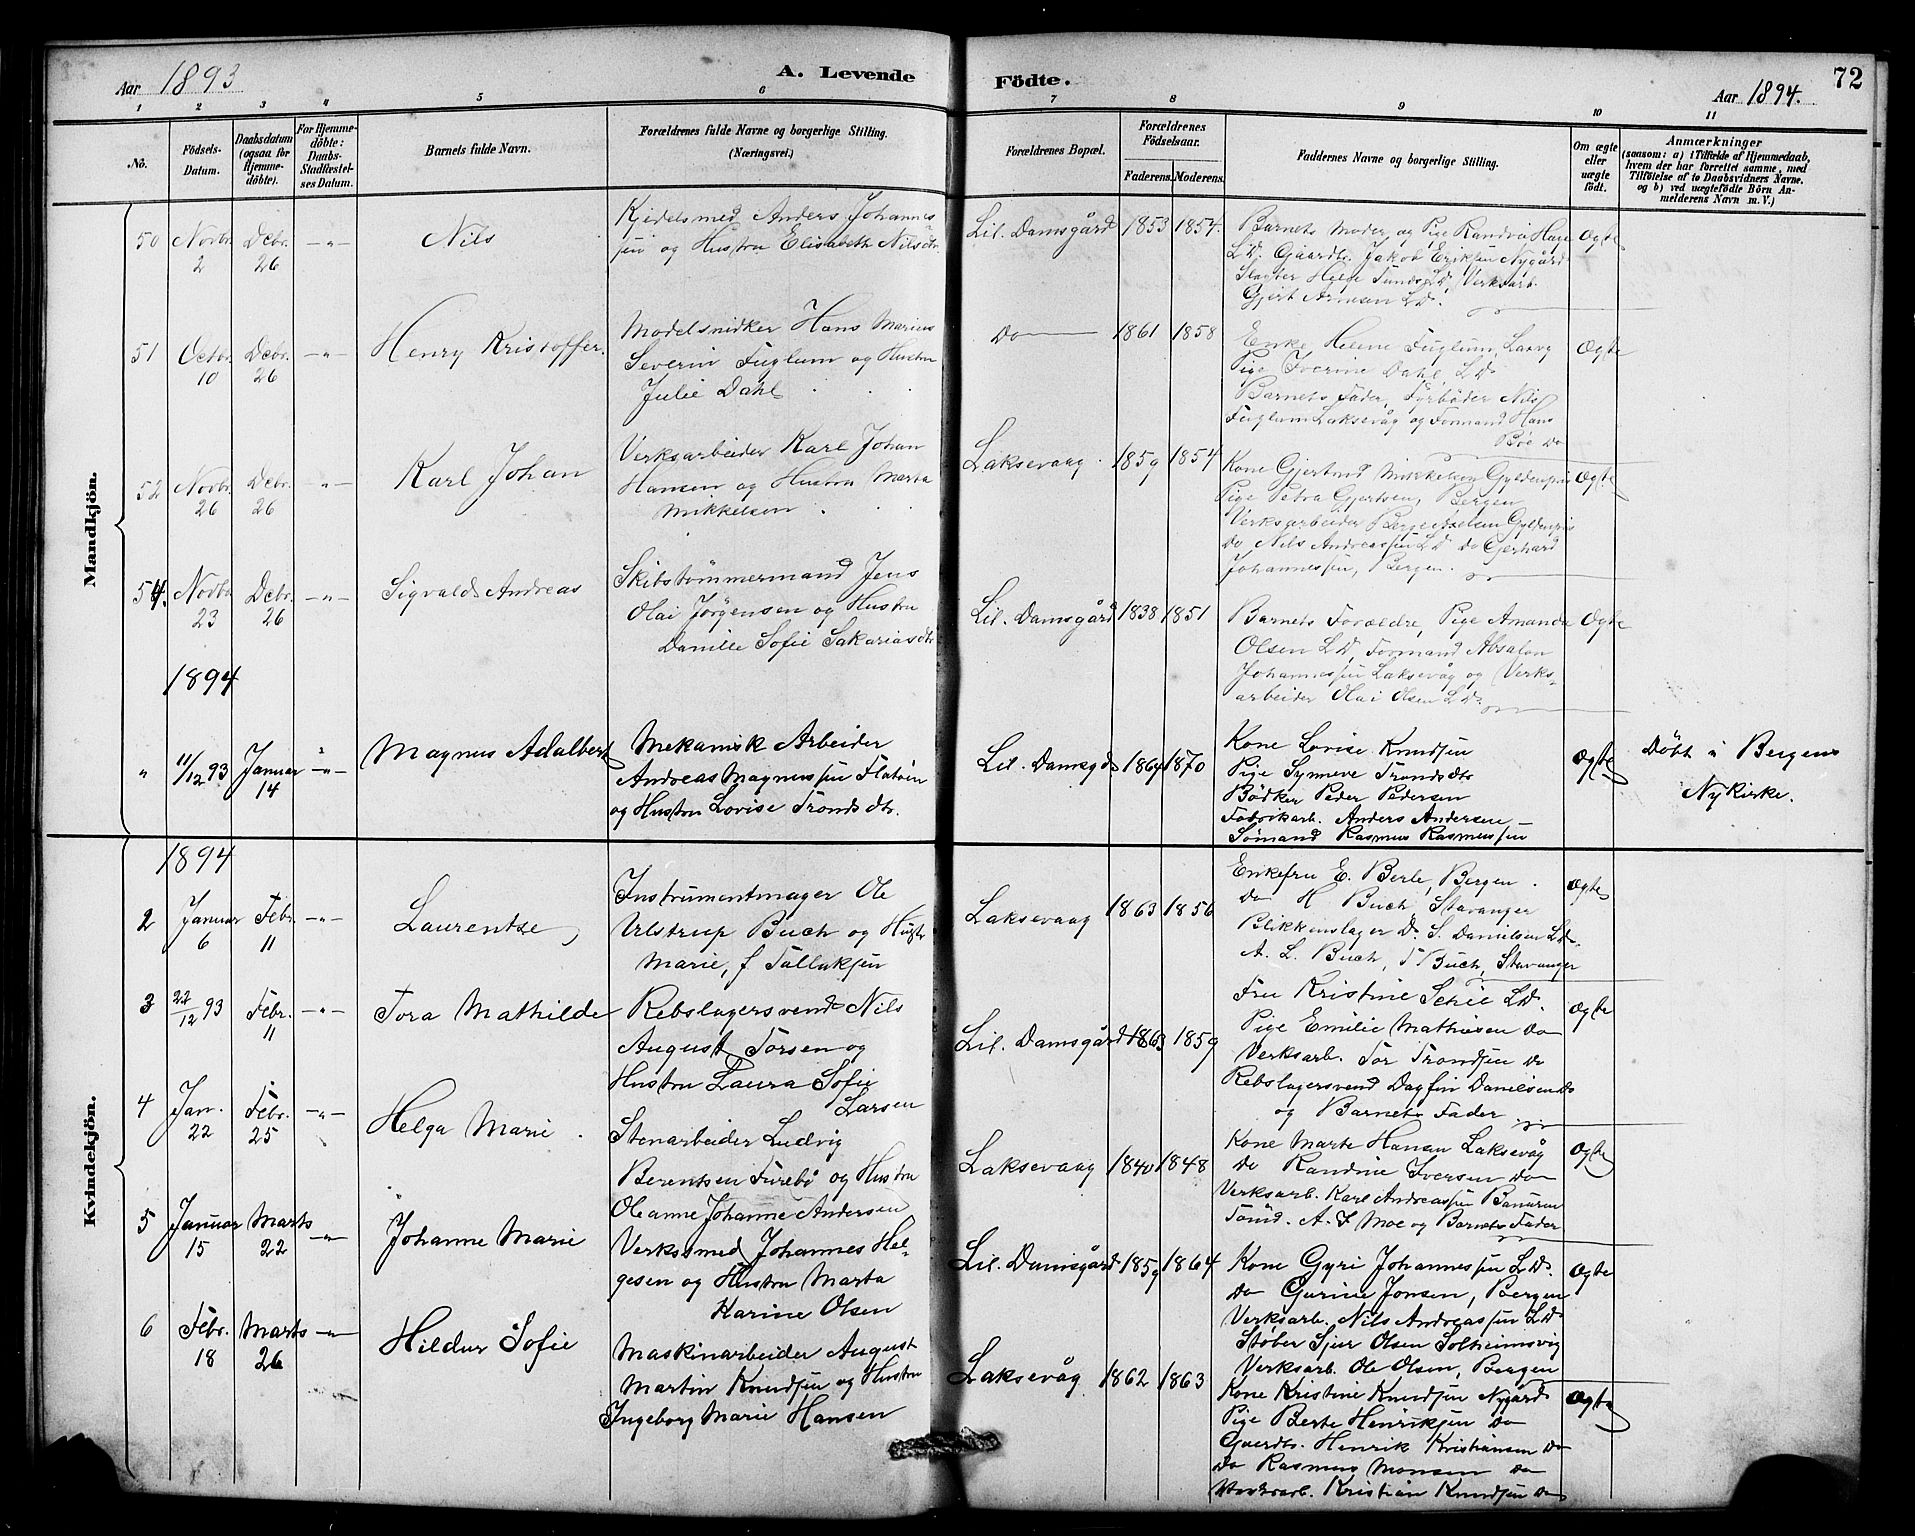 Aar 1893
A. Levende
Födte.
Aar 1894.
72
1 2 3 4 5 6 7 8 9 10 11
No.
Födsels-Datum.
Daabsdatum (ogsaa for Hjemme-döbte).
For Hjemme-döbte: Daabs-Stadfæstel-ses Datum.
Barnets fulde Navn.
Forældrenes fulde Navne og borgerlige Stilling.
(Næringsvei.)
Forældrenes Bopæl.
Forældrenes Födselsaar.
Faderens. Moderens.
Faddernes Navne og borgerlige Stilling.
Om ægte eller uægte födt.
Anmærkninger
(saasom: a) i Tilfælde af Hjemmedaab,
hvem der har forrettet samme, med
Tilföielse af to Daabsvidners Navne.
og b) ved uægtefödte Börn An-
melderens Navn m. V.)
Mandkjön.
50 Novbr. 2 Debr. 26 -"- Nils
Kjedelsmed Anders Johannes-
sen og Hustru Elisabeth Nilsdtr.
Lil. Damsgård 1853 1854.
Barnets Moder og Pige Randvei Hage
LD. Gaardbr. Jakob Eriksen Nygård
Slagter Helge LD, Verksarb.
Gjert Arnesen LD.
Ægte
51 Octbr. 10 Debr. 26 -"- Henry Kristoffer.
Modelsnidker Hans Marius
Severin Fuglum og Hustru
Julie Dahl
Do 1861 1858
Enke Helene Fuglum, Laxvg
Pige Iverine Dahl LD
Barnets Fader, Nils
Fuglum Laksevåg og Formand Hans
Böe Do
Ægte
52 Novbr. 26 Debr. 26 -"- Karl Johan
Verksarbeider Karl Johan
Hansen og Hustru Marta
Mikkelsen
Laksevaag. 1859 1854
Kone Gjertrud Mikkelsen Gyldenpris
Pige Petra Gjertsen, Bergen
Verksarbeider Gyldenpris
Do Nils Andreassen LD Do Gerhard
Johannessen, Bergen.
Ægte
54. Novbr. 23 Debr. 26 -"- Sigvald Andreas
Skibstömmermand Jens
Olai Jörgensen og Hustru
Danille Sofie Sakariasdtr
Lil. Damsgård 1838 1851
Barnets Forældre, Pige Amanda
Olsen LD, Formand Absalon
Johannessen Laksevåg og Verks-
arbeider Olai Olsen LD.
Ægte
1894
" 11/12 93 Januar 14 -"- Magnus Adalbert
Mekanisk Arbeider
Andreas Magnussen Flatöen
og Hustru Lovise Trondsdtr.
Lil. Damsgd 1869 1870
Kone Lovise Knudsen
Pige Synneve Trondsdtr
Bödker Peder Pedersen
Fabrikarb. Anders Andersen
Sömand Rasmus Rasmussen
Ægte
Döbt i Bergens
Nykirke.
Kvindekjön.
1894
2 Januar 6 Febr. 11 -"- Laurentze
Instrumentmager Ole
Ulstrup Buch og Hust
Marie, f Tallaksen
Laksevaag 1863 1856
Enkefru E. Berle, Bergen.
Do H Buch Stavanger
Blikkenslager D. S. Danielsen LD.
A. L. Buch, T Buch, Stavanger
Ægte
3 22/12 93 Febr. 11 -"- Tora Mathilde
Rebslagersvend Nils
August Torsen og
Hustru Laura Sofie
Larsen
Lil. Damsgård 1863 1859
Fru Kristine Schie LD.
Pige Emilie Mathiesen Do
Verksarb. Tor Trondsen Do
Rebslagersvend Dagfin Danielsen Do
og Barnets Fader
Ægte
4 Jan. 22 Febr. 25 -"- Helga Marie.
Stenarbeider Ludvig
Berentsen Furebö og Hustru
Oleanne Johanne Andersen
Laksevaag 1840 1848
Kone Marte Hansen Laksevåg
Do Randine Iversen Do
Verksarb. Karl Andreassen
Tömd. A. J Moe og Barnets Fader
Ægte
5 Januar 15 Marts 22 -"- Johanne Marie
Verkssmed Johannes Hel-
gesen og Hustru Marta
Karine Olsen
Lil. Damsgård 1859 1864
Kone Gyri Johannessen LD.
Do Gurine Jonsen, Bergen
Verksarb. Nils Andreassen LD
Stöber Sjur Olsen Solheimsvig
Verksarb. Ole Olsen, Bergen
Ægte
6 Febr. 18 Marts 26 -"- Hildur Sofie
Maskinarbeider August
Martin Knudsen og Hustru
Ingeborg Marie Hansen
Laksevåg 1862 1863
Kone Kristine Knudsen Nygård
Pige Berte Henriksen Do
Gaardbr. Henrik Kristiansen Do
Do Rasmus Monsen Do
Kristian Knudsen Do
Ægte